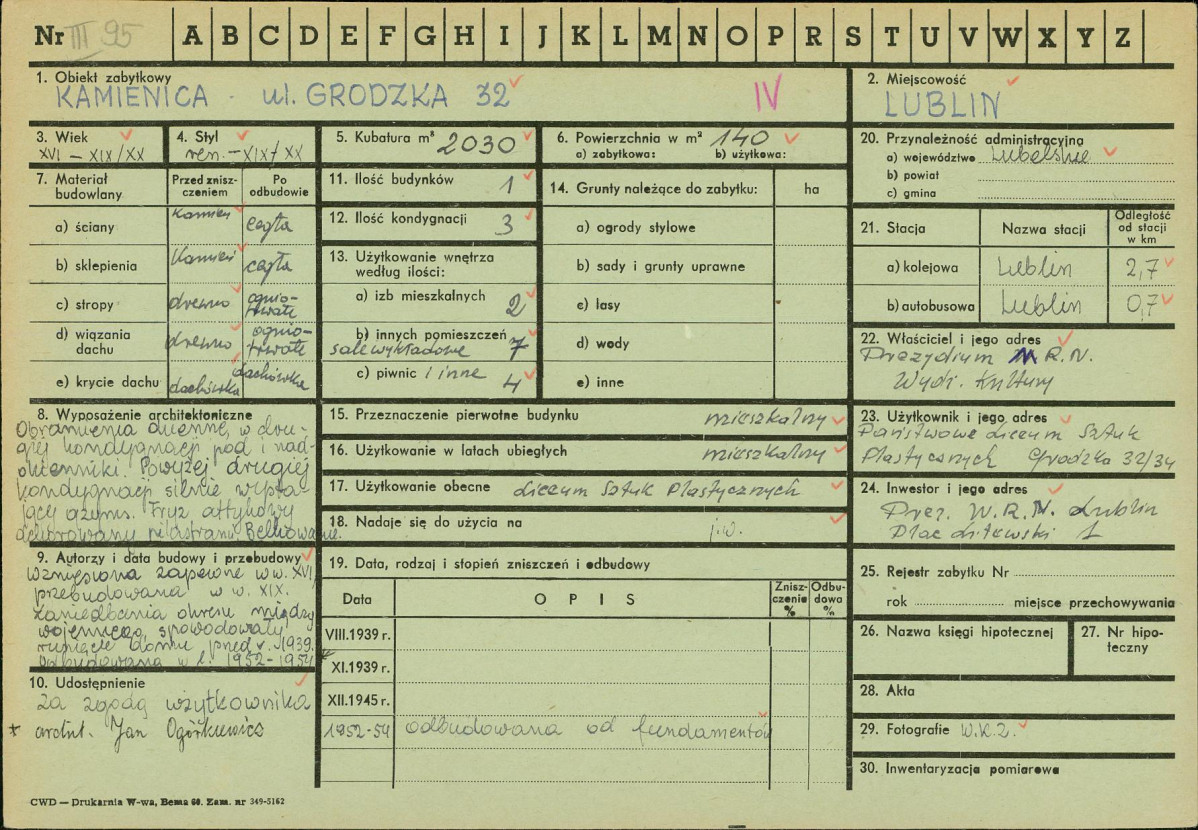 Nr III 95 A B C D E F G H I J K L M N O P R S T U V W X Y Z
1. Obiekt zabytkowy
KAMIENICA - ul. GRODZKA 32 IV
2. Miejscowość
LUBLIN
3. Wiek
XVI - XIX/XX
4. Styl
ren. - XIX/XX
5. Kubatura m³ 2030
6. Powierzchnia w m² 140
a) zabytkowa: b) użytkowa:
7. Materiał budowlany
Przed zniszczeniem
Po odbudowie
a) ściany kamień cegła
b) sklepienia kamień cegła
c) stropy drewno ogniotrwałe
d) wiązania dachu drewno ogniotrwałe
e) krycie dachu dachówka dachówka
8. Wyposażenie architektoniczne
Obramienia okienne, w dru-
giej kondygnacji pod i nad-
okienniki. Powyżej drugiej
kondygnacji silnie wysta-
jący gzyms. Fryz attykowy
dekorowany pilastrami. Belkowanie.
9. Autorzy i data budowy i przebudowy
Wzniesiona zapewne w w. XVI,
przebudowana w w. XIX.
Zaniedbania okresu między
wojennego, spowodowały
runięcie domu przed r. 1939.
Odbudowana w l. 1952-1954 *
10. Udostępnienie
za zgodą użytkownika
* archit. Jan Ogórkiewicz
11. Ilość budynków 1
12. Ilość kondygnacji 3
13. Użytkowanie wnętrza
według ilości:
a) izb mieszkalnych 2
b) innych pomieszczeń 7
sale wykładowe
c) piwnic i inne 4
14. Grunty należące do zabytku: ha
a) ogrody stylowe
b) sady i grunty uprawne
c) lasy
d) wody
e) inne
15. Przeznaczenie pierwotne budynku mieszkalny
16. Użytkowanie w latach ubiegłych mieszkalny
17. Użytkowanie obecne Liceum Sztuk Plastycznych
18. Nadaje się do użycia na j.w.
19. Data, rodzaj i stopień zniszczeń i odbudowy
Data O P I S Zniszczenie % Odbudowa %
VIII.1939 r.
XI.1939 r.
XII.1945 r.
1952-54 odbudowana od fundamentów
20. Przynależność administracyjna
a) województwo Lubelskie
b) powiat
c) gmina
21. Stacja Nazwa stacji Odległość od stacji w km
a) kolejowa Lublin 2,7
b) autobusowa Lublin 0,7
22. Właściciel i jego adres
Prezydium R.N.
Wydz. Kultury
23. Użytkownik i jego adres
Państwowe Liceum Sztuk
Plastycznych Grodzka 32/34
24. Inwestor i jego adres
Prez. W.R.N. Lublin
Plac Litewski 1
25. Rejestr zabytku Nr
rok miejsce przechowywania
26. Nazwa księgi hipotecznej
27. Nr hipoteczny
28. Akta
29. Fotografie W.K.Z.
30. Inwentaryzacja pomiarowa
CWD — Drukarnia W-wa, Bema 60. Zam. nr 349-5162